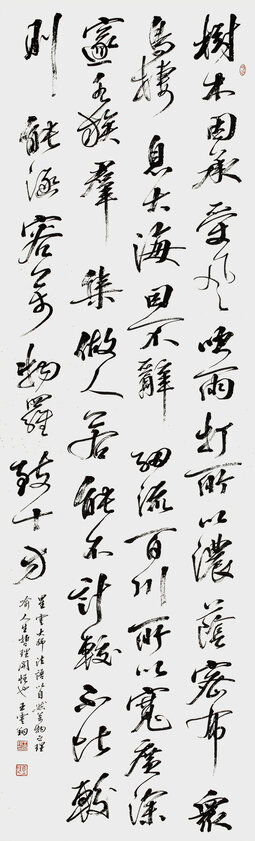 樹木因承受風吹雨打所以濃蔭密布眾
鳥棲息大海因不辭細流百川所以寬廣深
邃水族群集做人若能不計較不比較
則能涵容萬物羅致十方
星雲大師法語以自然萬物之理
喻人生哲理開悟也 王雲